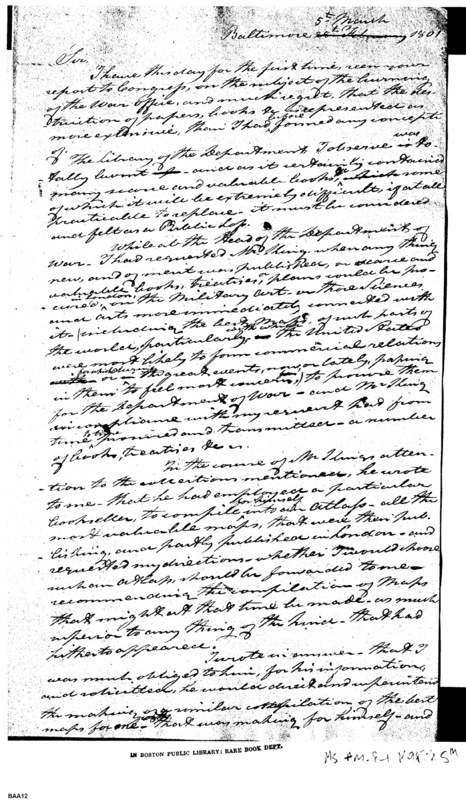 5th March
Baltimore 1801
Sir
I have this day for the first time, seen your
report to Congress, on the subject of the burning
of the War Office, and much regret, that the des-
truction of papers, books &c is represented as
more extensive, than I had before formed any concept
of. The Library of the Department I observe was to-
tally burnt and as it certainly contained
many scarce and valuable books, some
of which it will be extremely difficult, if at all
practicable to replace - it must be considered
and felt as a Public loss.
While at the Head of the Department of
War - I had requested Mr King, when any thing
new, and of merit was published, or scarce and
valuable books, treatises, plans could be pro-
cured, in London, on the Military art - or those Sciences
and arts more immediately connected with
it - (including the best Maps, of such parts of
the world, particularly with which the United States
were most likely to form commercial relations
or great events, now, or lately, passing
in them to feel most concern,) to procure them
for the Department of War - and Mr King
in compliance with my request had from
time to time procured and transmitted - a number
of books, treatises &c -.
In the course of Mr Kings atten-
tion to the subject mentioned, he wrote
to me - that he had employed a particular
bookseller, to compile for himself into an Atlass - all the
most valuable maps, that were then pub-
lishing, and partly published in London - and
requested my directions - whether I would choose
such an Atlass, should be forwarded to me -
recommending the compilation of Maps
that might at that time be made - as much
superior to any thing of the kind - that had
hitherto appeared.
I wrote in answer - that I
was much obliged to him, for his information,
and solicited, he would direct and superintend
the making, of a similar compilation of the best
maps for me - with that was making for himself - and
IN BOSTON PUBLIC LIBRARY: RARE BOOK DEPT.
BAA12